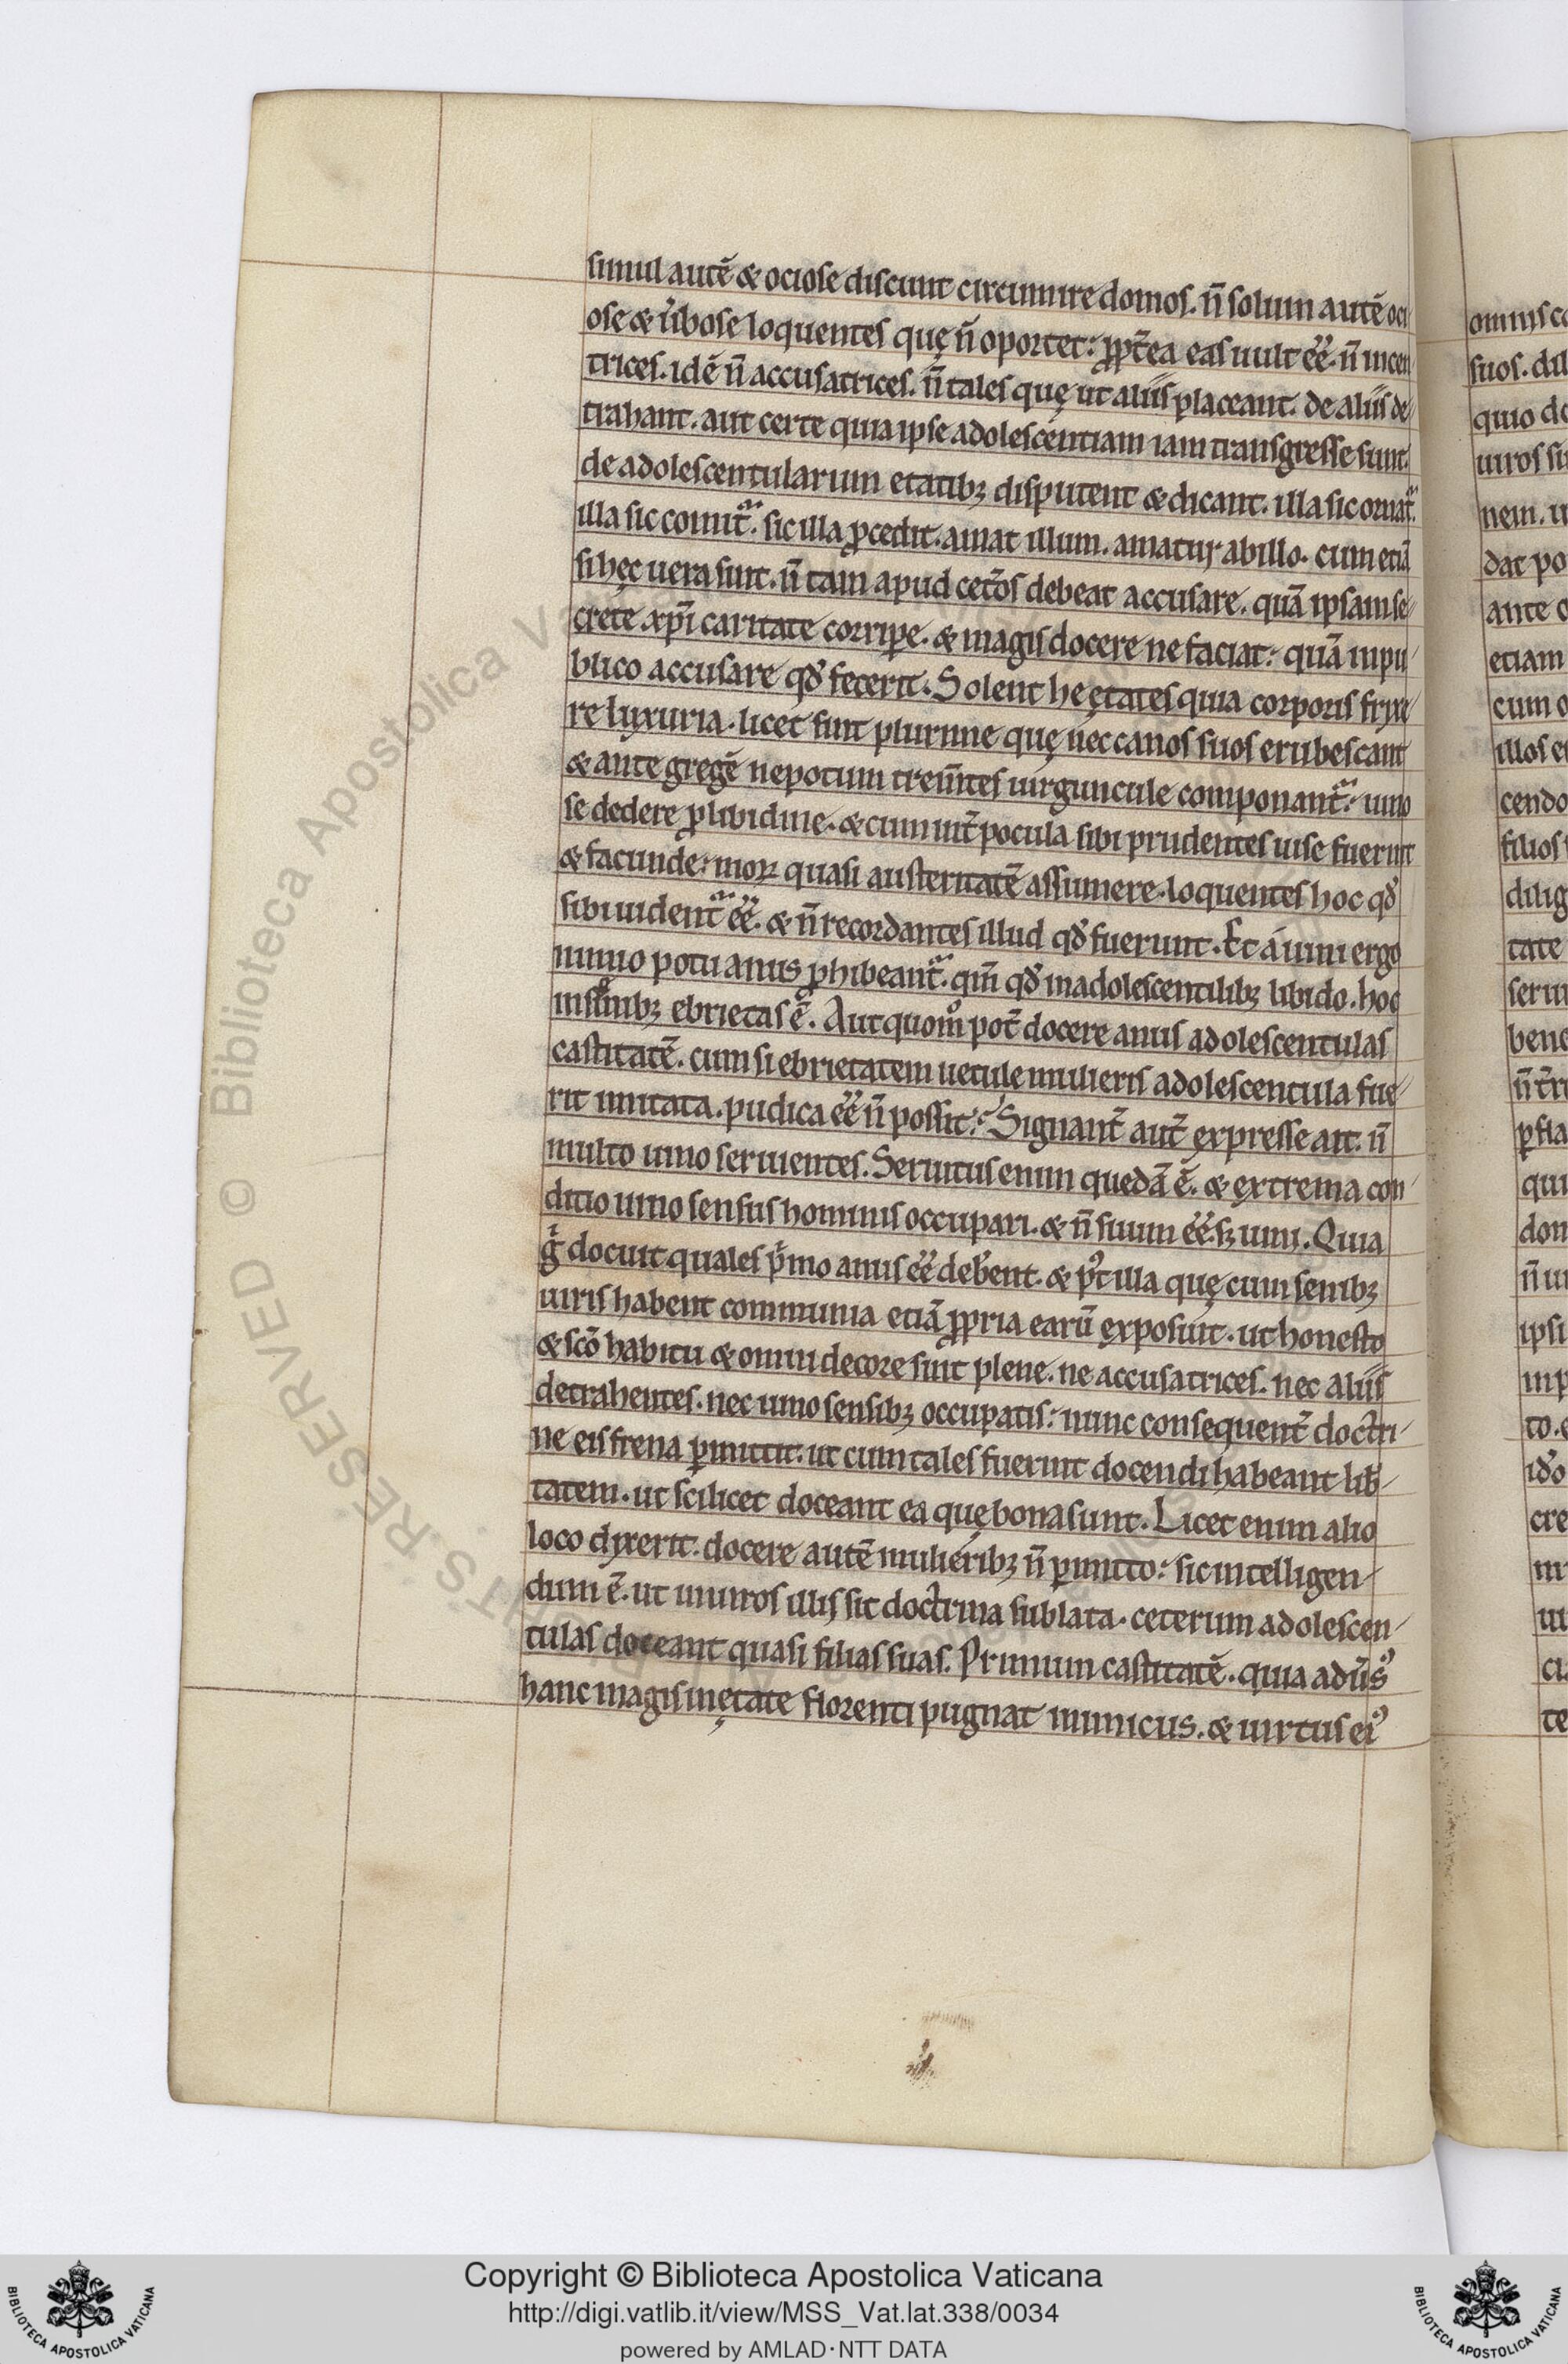 simul autē & ociose discunt circumire domos. n̄ solum autē oci
ose & ūbose loquentes quę n̄ oportet: ꝓpt̄ea eas uult eē̄. n̄ incen
trices. idē n̄ accusatrices. n̄ tales quę ut aliis placeant. de aliis de
trahant. aut certe quia ipse adolescentiam iam transgresse sunt.
de adolescentularum etatibꝫ disputent & dicant. illa sic ornat᷑.
illa sic comit᷑. sic illa ꝓcedit. amat illum. amatur ab illo. cum etiā
si hęc uera sunt. n̄ tam apud cet̄os debeat accusare. quā ipsam se
crete xp̄i caritate corriꝑe. & magis docere ne faciat: quā in pu
blico accusare qđ fecerit. Solent he ętates quia corporis frixe
re luxuria. licet sint plurime quę nec canos suos erubescant
& ante gregē nepotum trem̄tes uirguncule componant᷑: uino
se dedere ꝓ libidine. & cum int̄ pocula sibi prudentes uise fuerint
& facunde: morꝫ quasi austeritatē assumere. loquentes hoc qđ
sibi uident᷑ eē̄. & n̄ recordantes illud qđ fuerunt. Et á uini ergo
nimio potu anus ꝓhibeant᷑. qm̄ qđ in adolescentilibꝫ libido. hoc
in senibꝫ ebrietas ē. Aut quom̊ pot̄ docere anus adolescentulas
castitatē. cum si ebrietatem uetule mulieris adolescentula fue
rit imitata. pudica eē̄ n̄ possit? Signant̄ aut̄ ęxpresse ait. n̄
multo uino seruientes. Seruitus enim quedā ē. & ęxtrema con
ditio uino sensus hominis occupari. & n̄ suum eē̄. sꝫ uini. Quia
gͥ docuit quales pͥmo anus eē̄ deb̄ent. & p̾t illa quę cum senibꝫ
uiris habent communia etiā ꝓpria earū ęxposuit. ut honesto
& sc̄o habitu & omni decore sint plene. ne accusatrices. nec aliis
detrahentes. nec uino sensibꝫ occupatis: nunc consequent̄ doctͥ-
ne eis frena ꝑmittit. ut cum tales fuerint docendi habeant lib̄-
tatem. ut scilicet doceant ea quę bona sunt. Licet enim alio
loco dixerit. docere autē mulieribꝫ n̄ ꝑmitto: sic intelligen-
dum ē. ut in uiros illis sit doctͥna sublata. ceterum adolescen-
tulas doceant quasi filias suas. Primum castitatē. quia adūs᷒
hanc magis in ętate florenti pugnat inimicus. & uirtus ei᷒
omnis
suos. dil
quio
uiros
nem.
dat po
ante
etiam
cum
illos
cendo
filios
dilig
tate
bene
qui
ipsi
to.
Copyright © Biblioteca Apostolica Vaticana
http://digi.vatlib.it/view/MSS_Vat.lat.338/0034
powered by AMLAD·NTT DATA
BIBLIOTECA APOSTOLICA VATICANA
BIBLIOTECA APOSTOLICA VATICANA